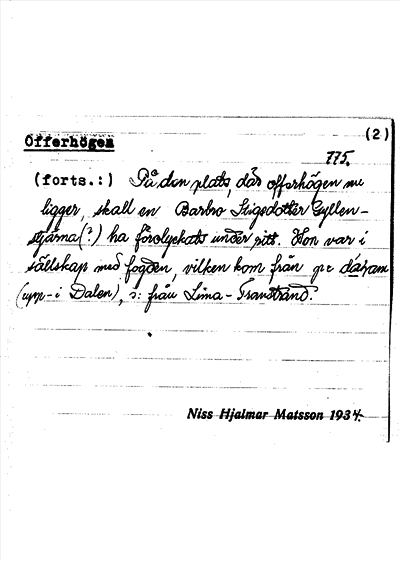 Offerhögen
(2)
775.
(forts.:) På den plats, där offerhögen nu
ligger, skall en Barbro Stigsdotter Gyllen-
stjärna (?) ha förolyckats under ritt. Hon var i
sällskap med fogden, vilken kom från
(upp-i Dalen), ɔ: från Lima-Transtrand.
Niss Hjalmar Matsson 1934.